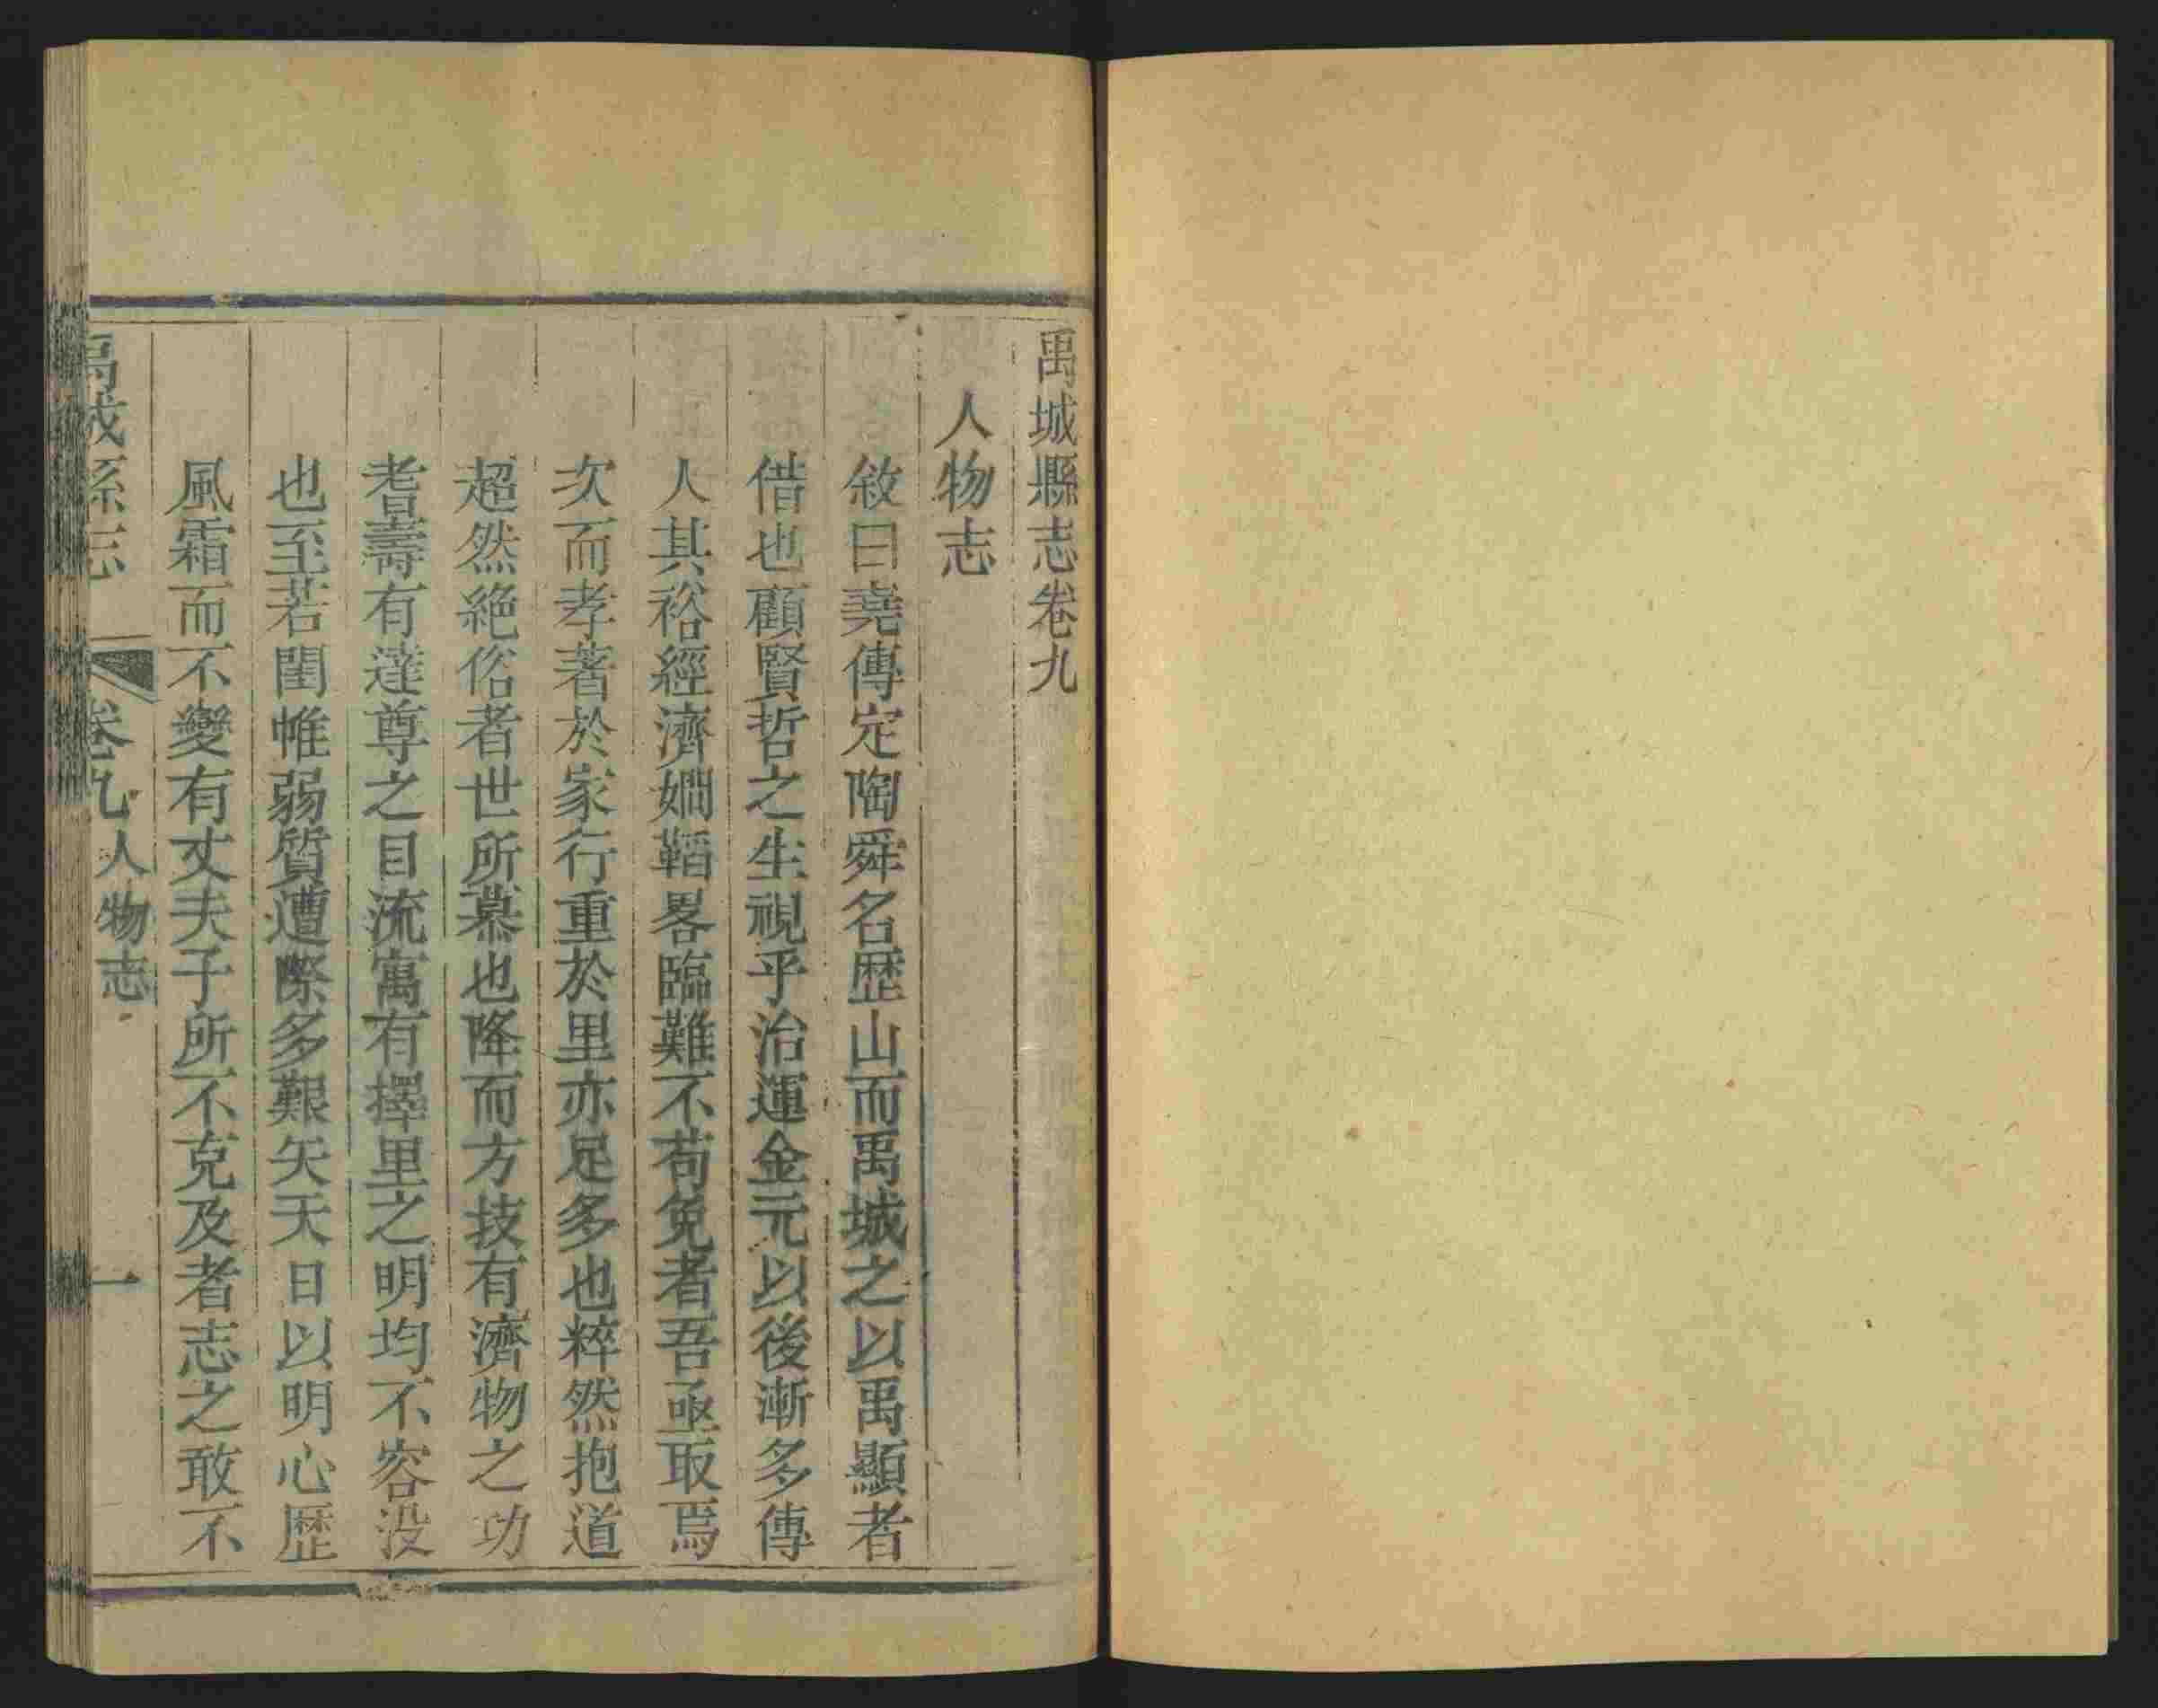 禹城縣志卷九
人物志
敘曰堯傳定陶舜名歷山而禹城之以禹顯者
借也顧賢哲之生視乎治運金元以後漸多傳
人其裕經濟嫻韜畧臨難不苟免者吾亟取焉
次而孝著於家行重於里亦足多也粹然抱道
超然絶俗者世所慕也降而方技有濟物之功
耆壽有達尊之目流寓有擇里之明均不容没
也至若閨帷弱質遭際多艱矢天日以明心歷
風霜而不變有丈夫子所不克及者志之敢不
禹城縣志 卷九 人物志 一